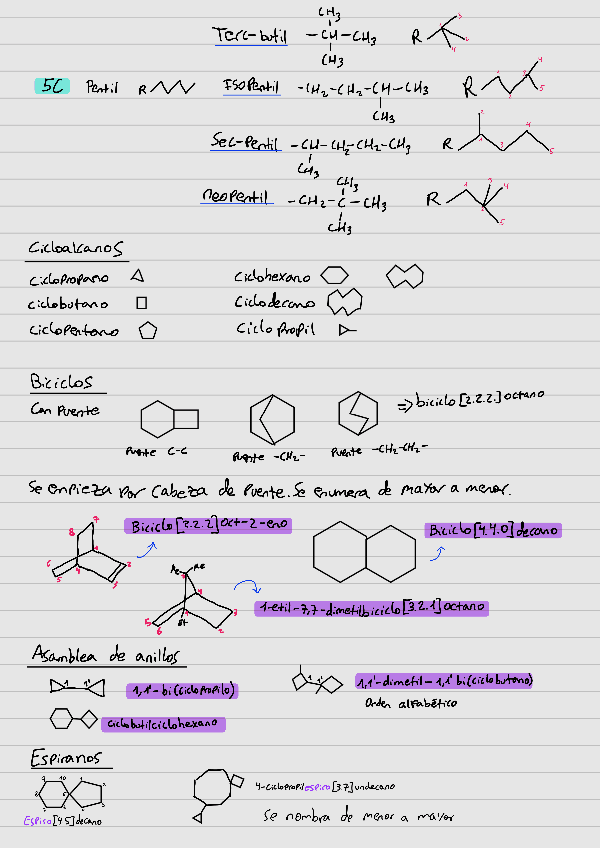 CH3
Terc-butil -CH-CH3 R
CH3
5C Pentil R Isopentil -CH2-CH2-CH-CH3 R
CH3
Sec-Pentil -CH-CH2-CH2-CH3 R
CH3
CH3
neopentil -CH2-C-CH3 R
CH3
Cicloalcanos
Ciclopropano Ciclohexano
ciclobutano Ciclodecano
Ciclopentano Ciclo propil
Biciclos
Con Puente => biciclo[2.2.2.]octano
Puente C-C Puente -CH2- Puente -CH2-CH2-
Se empieza por Cabeza de Puente. Se enumera de mayor a menor.
Biciclo[2.2.2]oct-2-eno Biciclo[4.4.0]decano
Me Me
1-etil-7,7-dimetilbiciclo[3.2.1]octano
Et
Asamblea de anillos
1 1' 1,1'-bi(ciclopropilo) 1 1' 1,1'-dimetil-1,1'bi(ciclobutano)
Orden alfabético
ciclobutilciclohexano
Espiranos
4-ciclopropilespiro[3.7]undecano
Espiro[4.5]decano Se nombra de menor a mayor